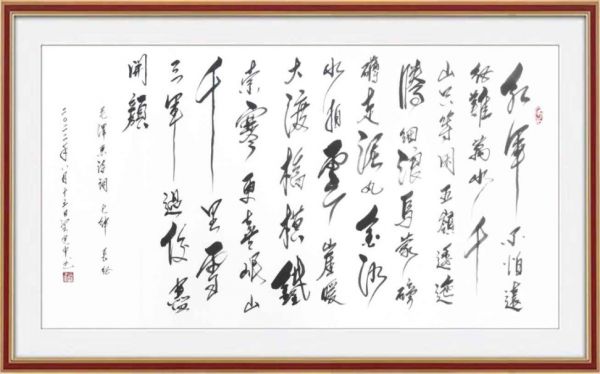 红军不怕遠
征難萬水千
山只等闲五嶺逶迤
騰细浪烏蒙磅
礴走泥丸金沙
水拍雲崖暖
大渡橋横鐵
索寒更喜岷山
千里雪
三军過後盡
開顏
毛澤东诗詞 七律 長征
二〇二二年八月十五日